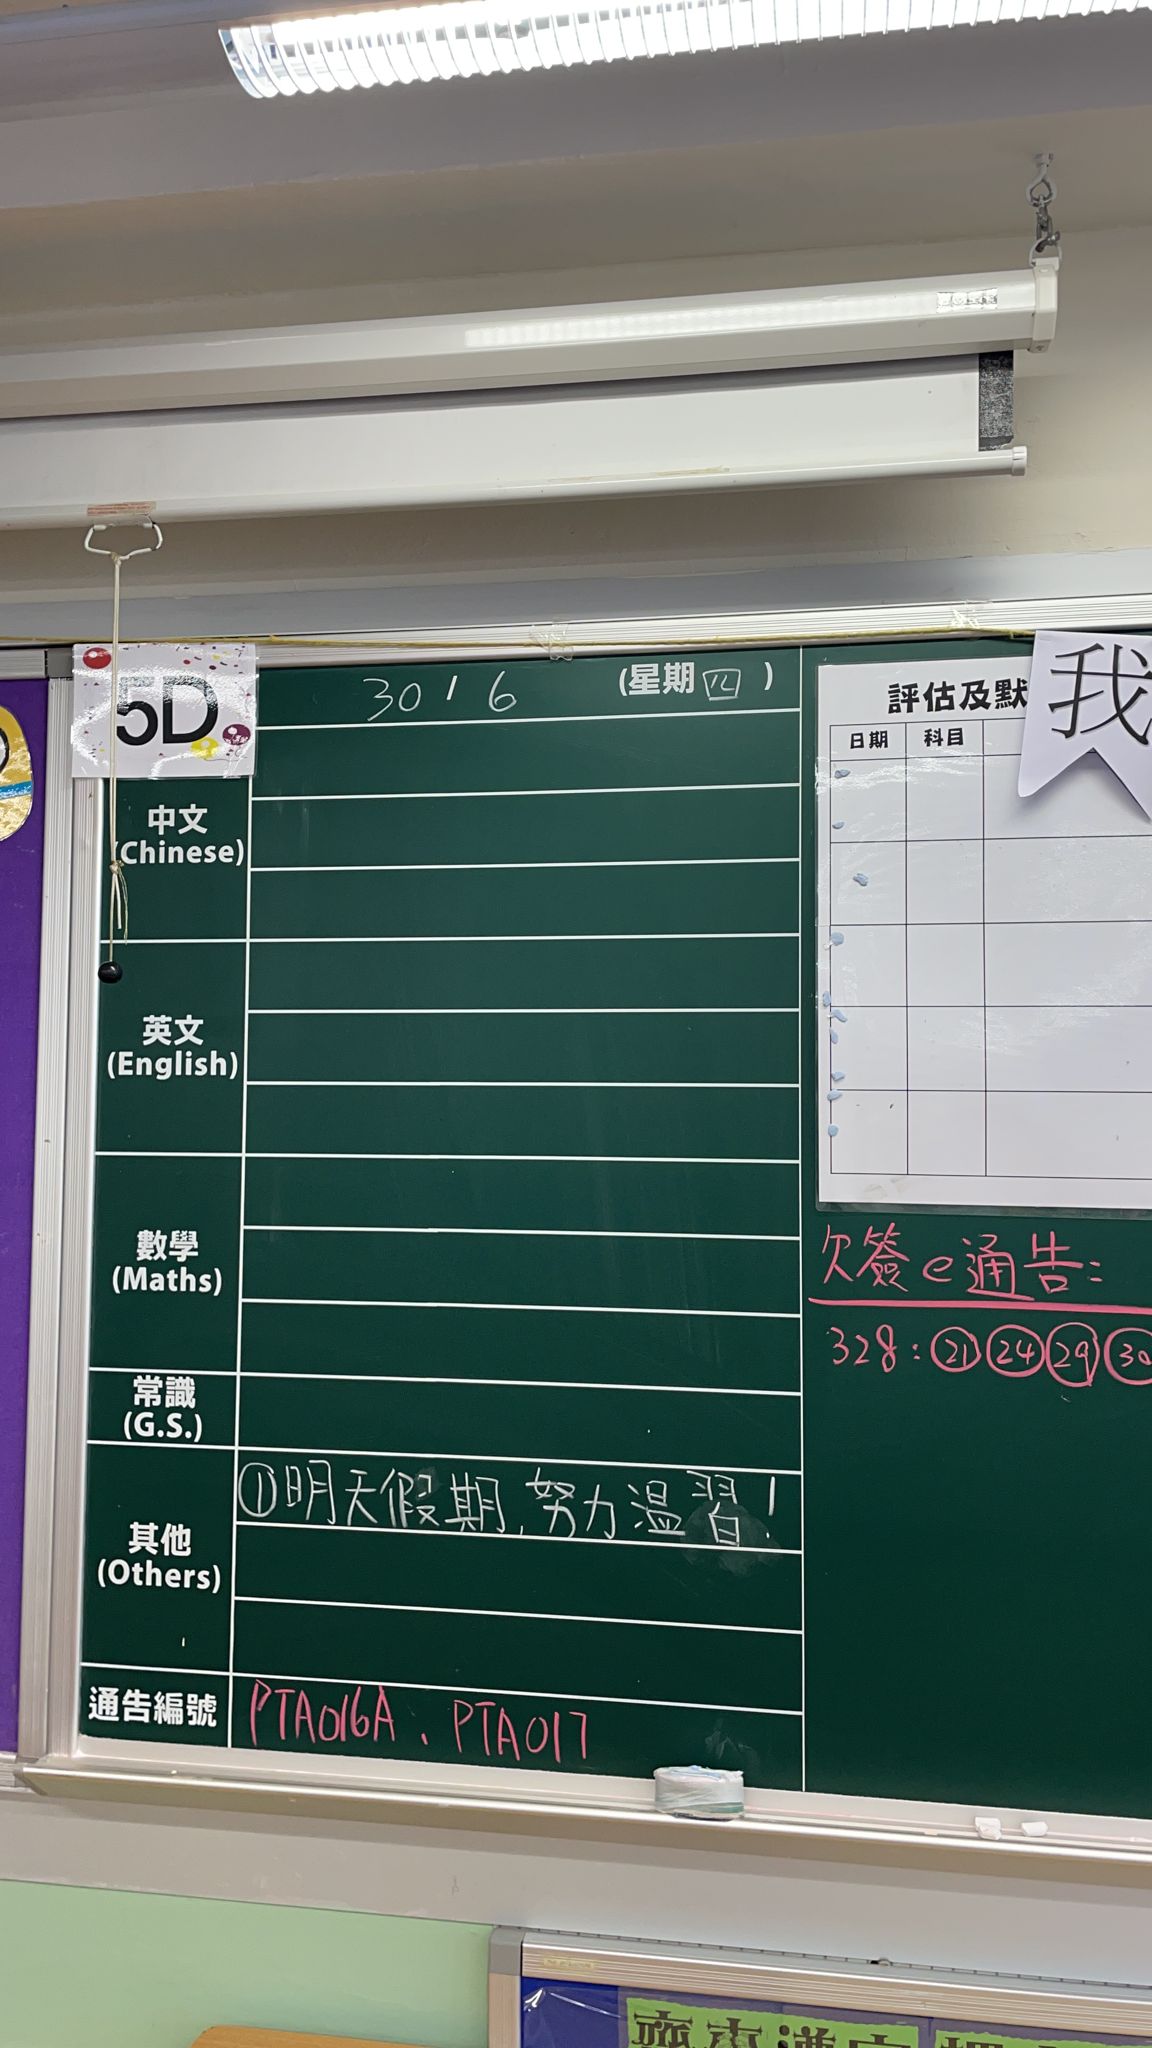 5D
30 / 6 (星期四)
評估及默
我
日期 科目
中文
(Chinese)
英文
(English)
數學
(Maths)
常識
(G.S.)
其他
(Others)
①明天假期,努力溫習!
通告編號
PTA016A、PTA017
欠簽e通告:
328: ㉑ ㉔ ㉙ ㉚